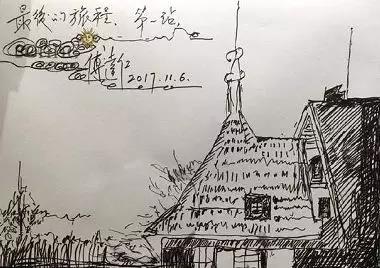 最後的旅程、第一站,
傅達仁
2017.11.6.